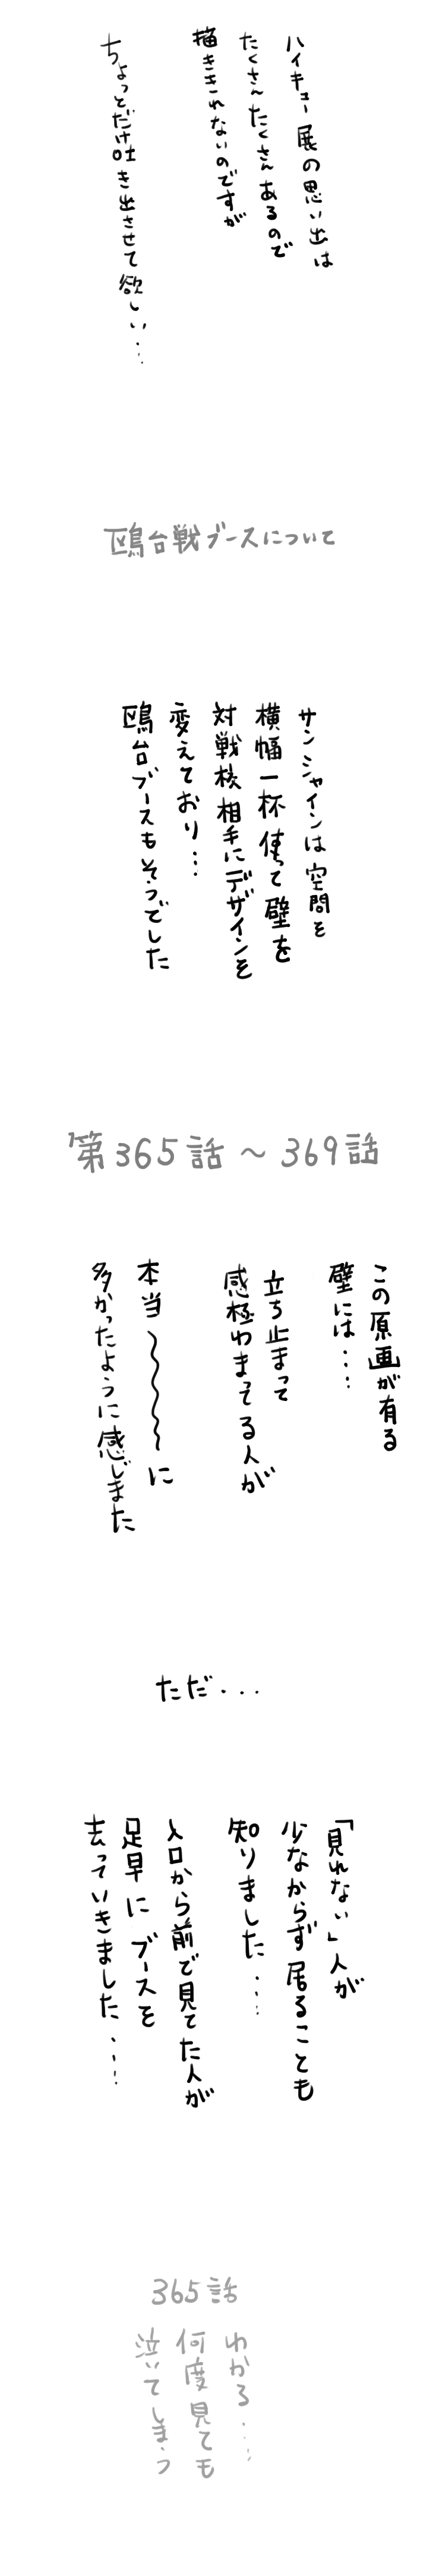 ハイキュー展の思い出は
たくさんたくさんあるので
描ききれないのですが
ちょっとだけ吐き出させて欲しい...
鴎台戦ブースについて
サンシャインは空間を
横幅一杯使って壁を
対戦校相手にデザインを
変えており...
鴎台ブースもそうでした
第365話～369話
この原画が有る
壁には...
立ち止まって
感極わまってる人が
本当〜〜〜〜に
多かったように感じました
ただ...
「見れない」人が
少なからず居ることも
知りました....
入口から前で見てた人が
足早にブースを
去っていきました....
365話
わかる....
何度見ても
泣いてしまう